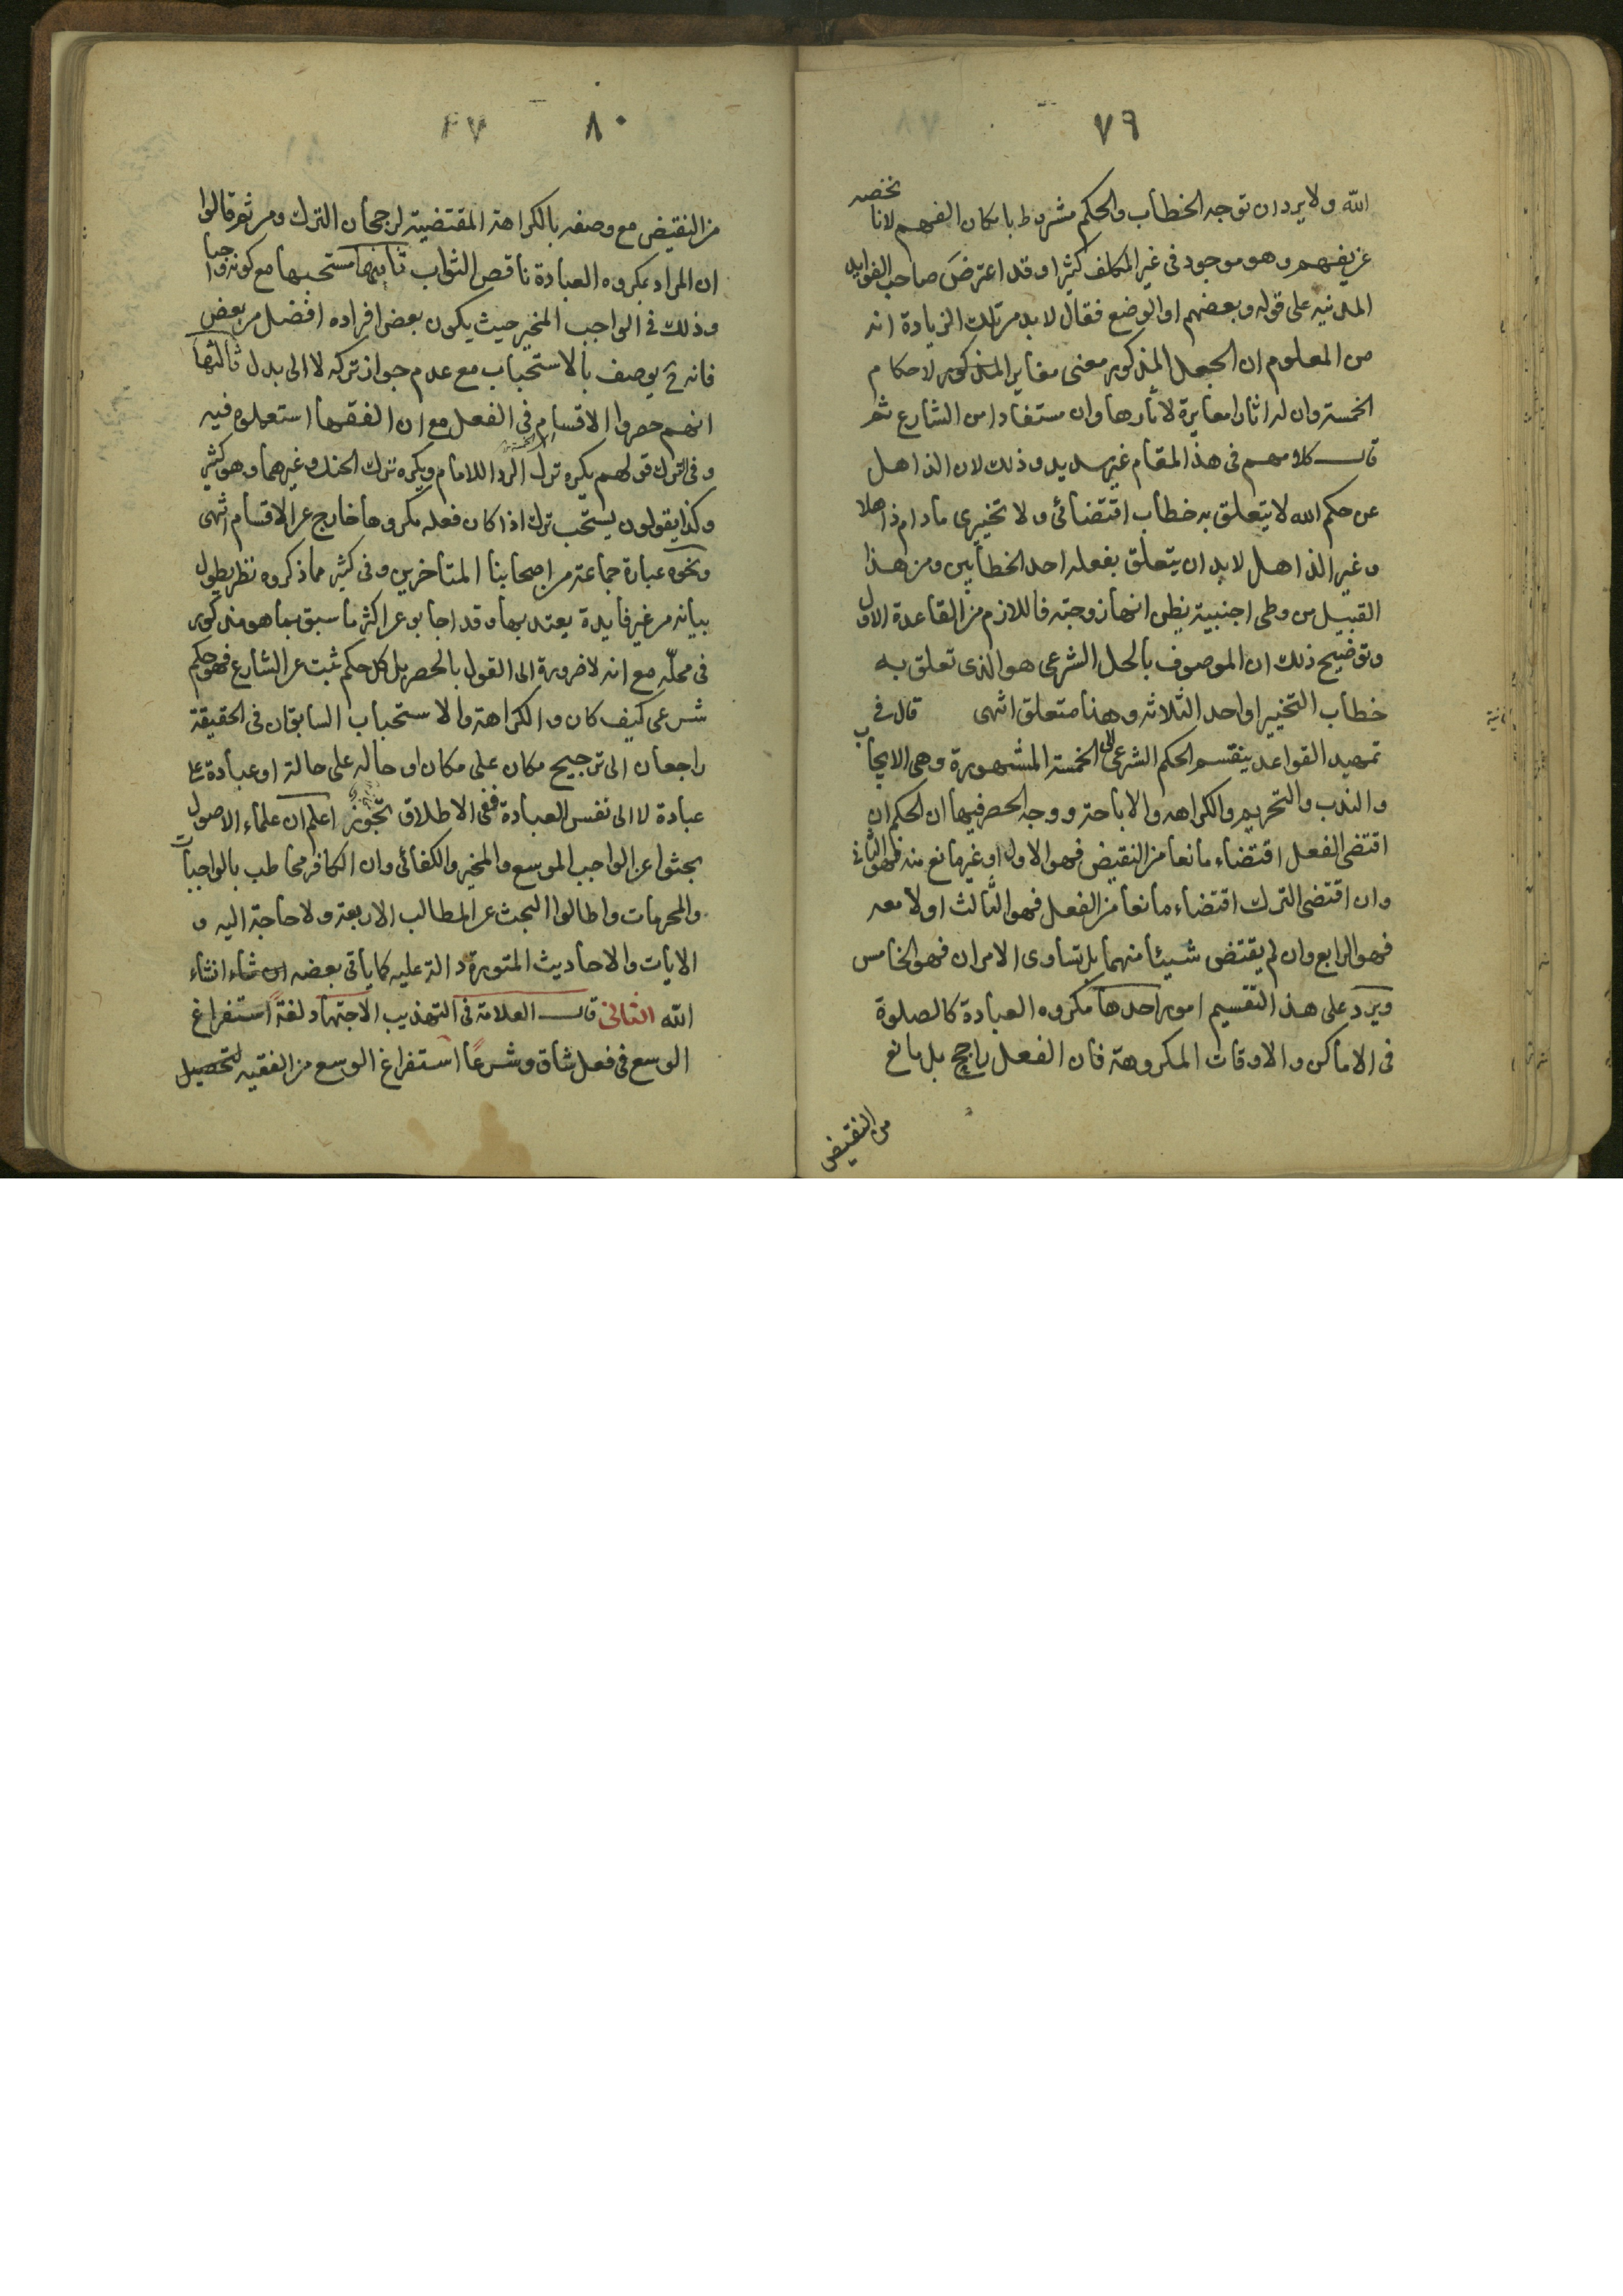 ٧٩
الله ولا يرد ان توجه الخطاب والحكم مشروط بامكان الفهم لانا نخصه
عن يفهم وهو موجود فى غير المكلف كثيرا وقد اعترض صاحب الفوايد
المدنيه على قوله وبعضهم او الوضع فقال لا بد من تلك الزيادة انه
من المعلوم ان الجعل المذكور معنى مغاير المذكور لاحكام
الخمسة وان له اثارا مغايرة لاثارها وان مستفادا من الشارع ثم
قال كلامهم فى هذا المقام غير سديد وذلك لان الذاهل
عن حكم الله لا يتعلق به خطاب اقتضائى ولا تخييرى مادام ذاهلا
وغير الذاهل لا بد ان يتعلق بفعله احد الخطابين ومن هذا
القبيل من وطى اجنبية يظن انها زوجته فاللازم من القاعدة الاول
وتوضيح ذلك ان الموصوف بالحل الشرعى هو الذى تعلق به
خطاب التخيير او احد الثلاثه وهنا متعلق انتهى قال فى
تمهيد القواعد ينقسم الحكم الشرعى الى الخمسة المشهورة وهى الايجاب
والندب والتحريم والكراهه والاباحة ووجه الحصر فيها ان الحكم ان
اقتضى الفعل اقتضاء مانعا من النقيض فهو الاول او غير مانع منه فهو الثانى
وان اقتضى الترك اقتضاء مانعا من الفعل فهو الثالث او لا معه
فهو الرابع وان لم يقتض شيئا منهما بل تساوى الامران فهو الخامس
ويرد على هذا التقسيم امور احدها مكروه العبادة كالصلوة
فى الاماكن والاوقات المكروهة فان الفعل راجح بل مانع
من النقيض
٨٠
من النقيض مع وصفه بالكراهة المقتضية لرجحان الترك ومن ثم قالوا
ان المراد بمكروه العبادة ناقص الثواب ثانيها مستحبها مع كونه واجبا
وذلك فى الواجب المخير حيث يكون بعض افراده افضل من بعض
فانه ح يوصف بالاستحباب مع عدم جواز تركه لا الى بدل ثالثها
انهم حصروا الاقسام فى الفعل مع ان الفقها استعملوه فيه
وفى الترك قولهم يكره ترك الردا للامام ويكره ترك الحنك وغيرهما وهو كثير
وكذا يقولون يستحب ترك اذا كان فعله مكروها خارج عن الاقسام انتهى
ونحوه عبارة جماعة من اصحابنا المتاخرين وفى كثير مما ذكروه نظر يطول
بيانه من غير فايدة يعتد بها وقد اجابو عن اكثر ما سبق بما هو مذكور
فى محله مع انه لا ضرورة الى القول بالحصر بل كل حكم ثبت عن الشارع فهو حكم
شرعى كيف كان والكراهة والاستحباب السابقان فى الحقيقة
راجعان الى ترجيح مكان على مكان او حاله على حالة او عبادة على
عبادة لا الى نفس العبادة ففى الاطلاق تجوز اعلم ان علماء الاصول
بحثوا عن الواجب الموسع والمخير والكفائى وان الكافر مخاطب بالواجبات
والمحرمات واطالوا البحث عن المطالب الاربعة ولا حاجة اليه و
الايات والاحاديث المتوترة دالة عليه كما ياتى بعضه ان شاء انشاء
الله الثانى قال العلامة فى التهذيب الاجتهاد لغةً استفراغ
الوسع فى فعل شاق وشرعًا استفراغ الوسع من الفقيه لتحصيل